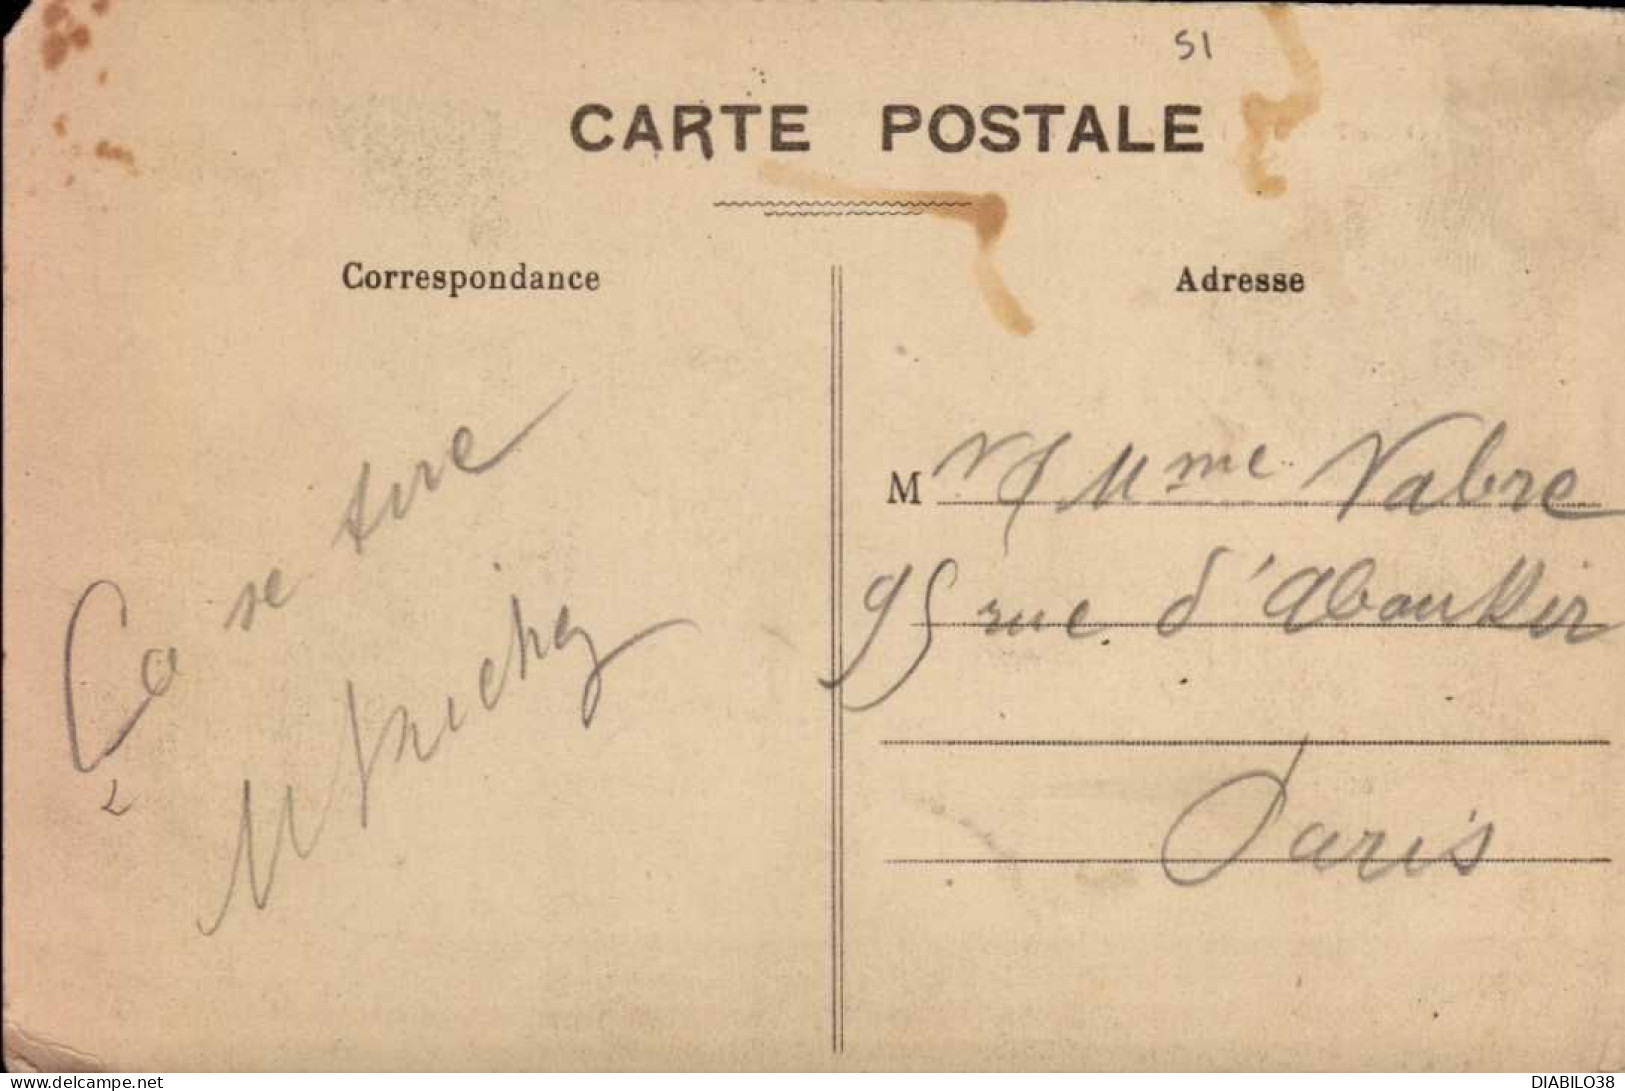 51
CARTE POSTALE
Correspondance
Ça se tire
Adresse
M Mme Vabre
95 rue d'Aboukir
Paris
www.delcampe.net
DIABILO38